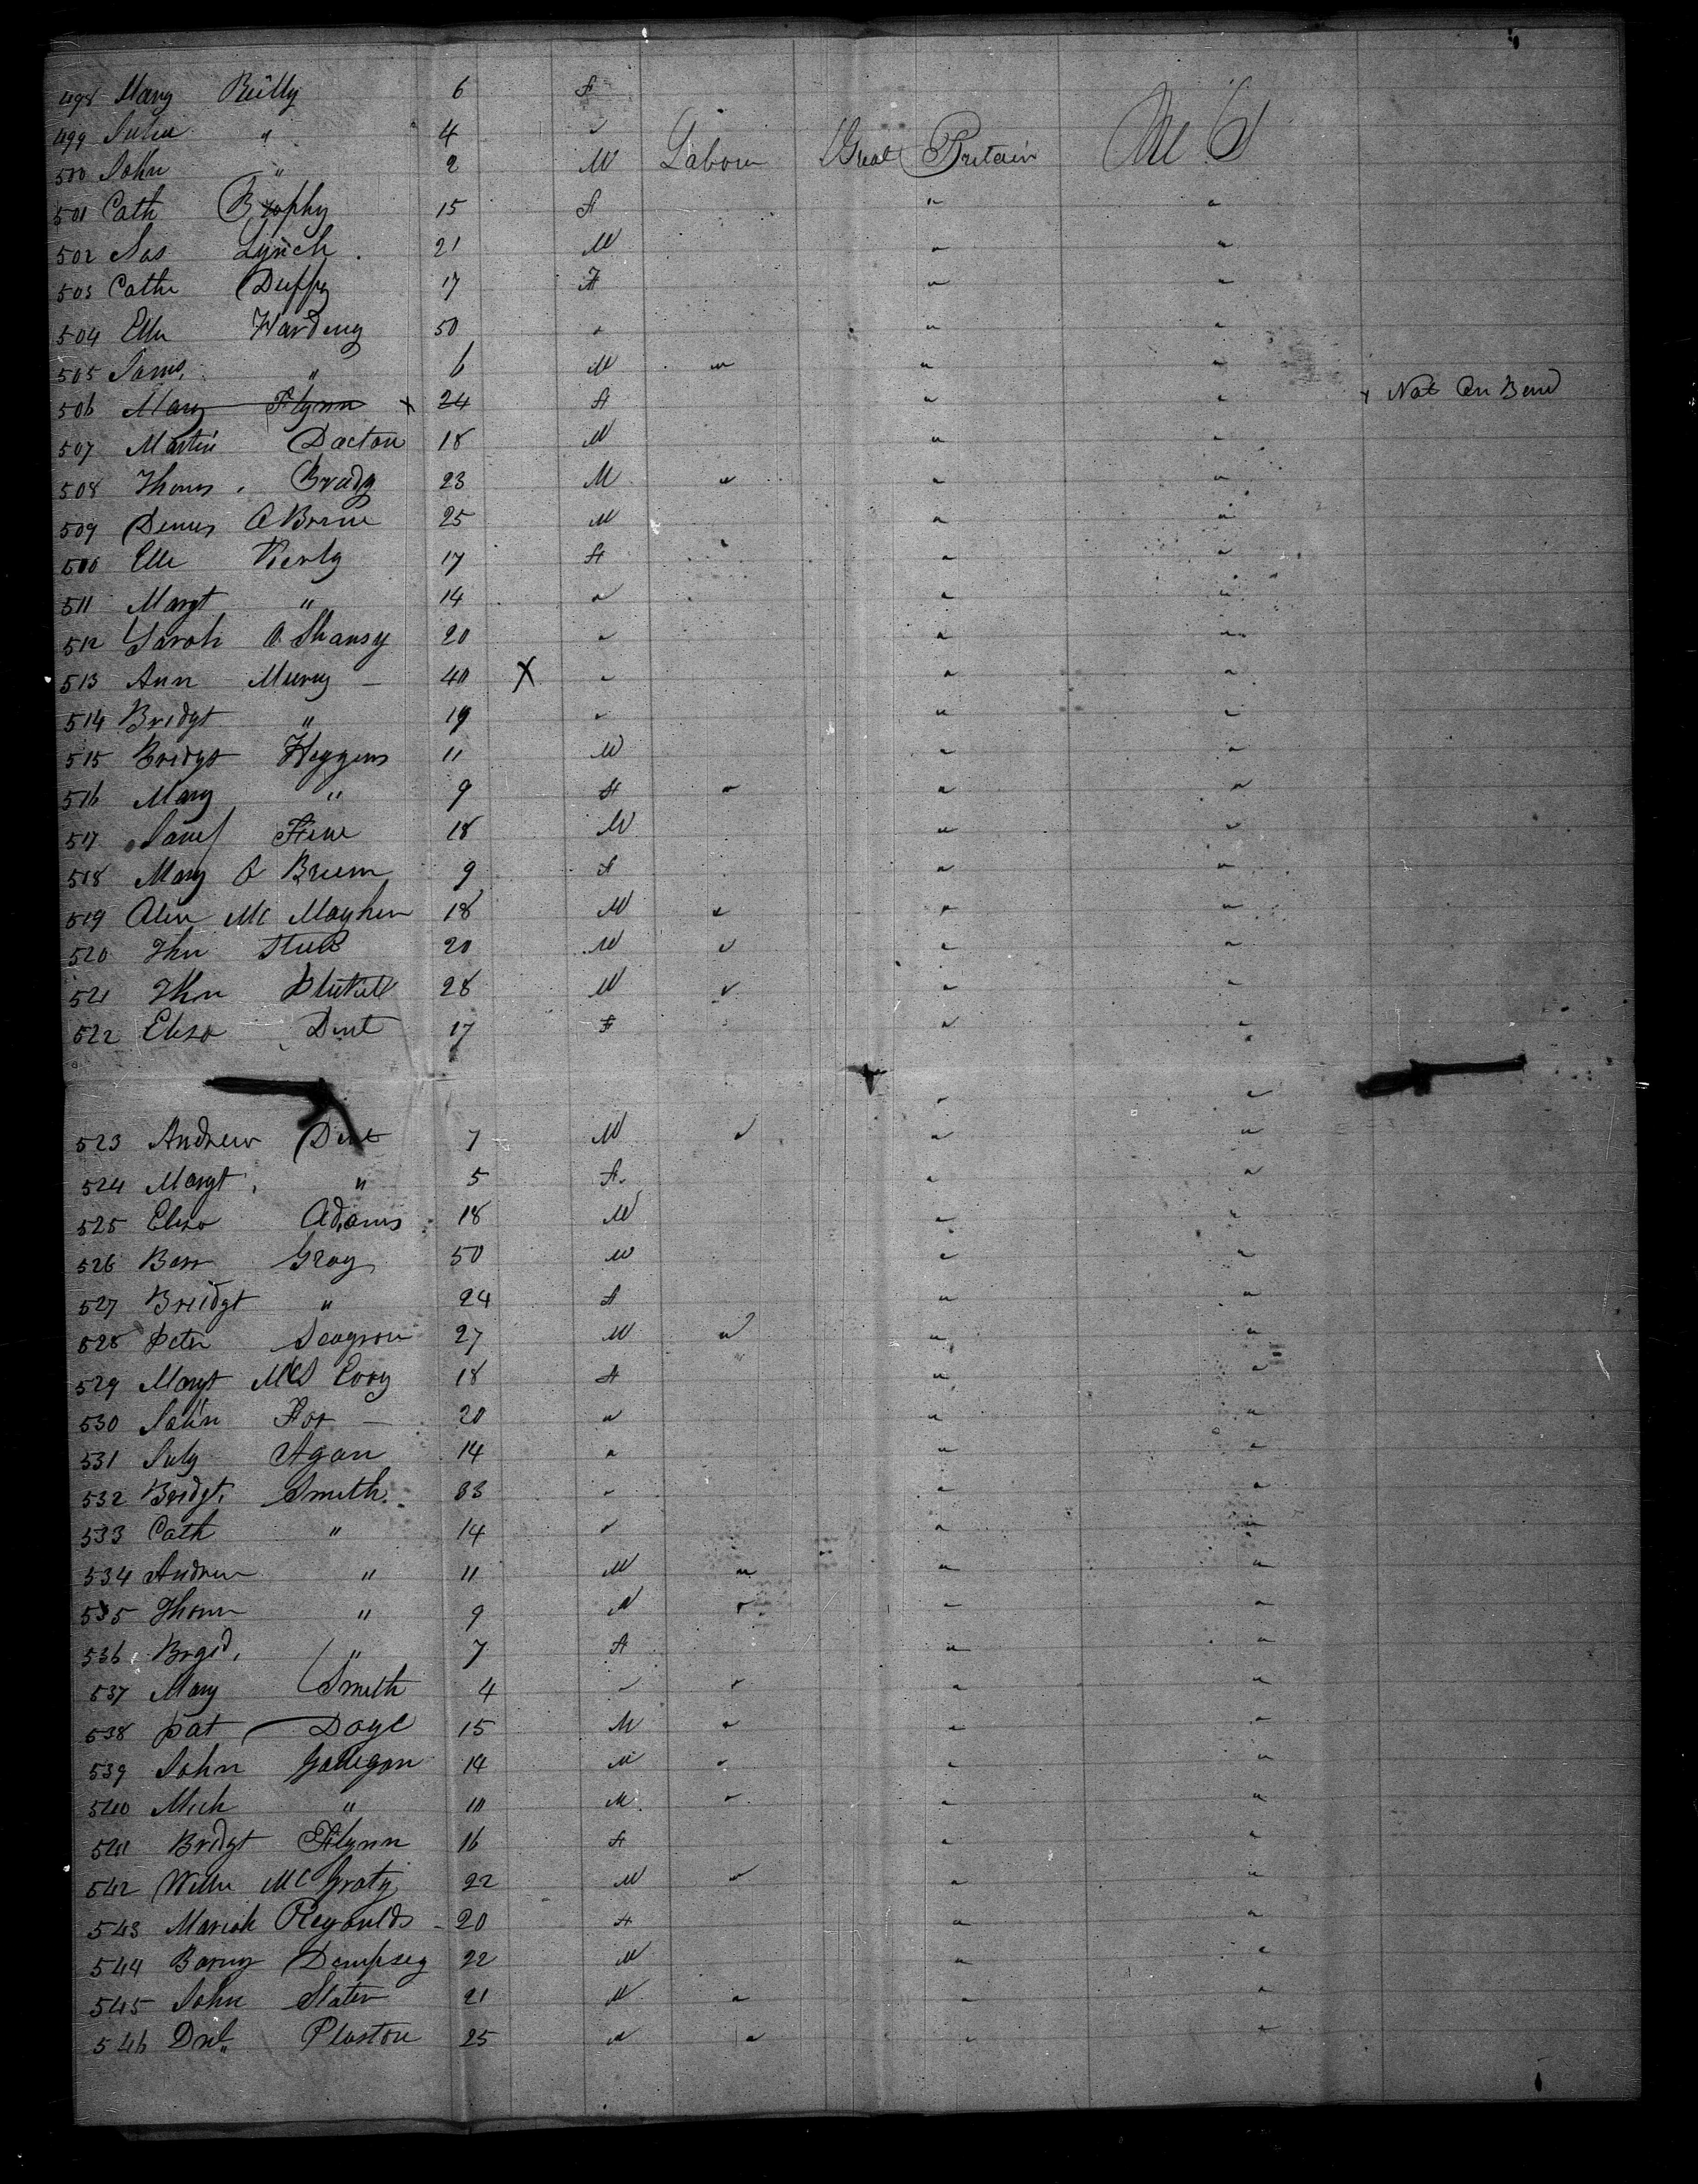 498 Mary Reilly 6 F
499 Julia " 4 "
500 John " 2 M Labour Great Britain U S
501 Cath Brophy 15 F " "
502 Jas Lynch 21 M " "
503 Cathe Duffy 17 F " "
504 Ellen Hardeng 50 " " "
505 James " 6 M " " "
506 Mary Flynn x 24 F " " x Not On Bord
507 Martin Dacton 18 M " "
508 Thoms Brady 23 M " " "
509 Dennis O Borne 25 M " "
510 Elle 17 F " "
511 Margt " 14 " " "
512 Sarah O Shansy 20 " " "
513 Ann Murry 40 X " " "
514 Bridgt " 19 " " "
515 Bridgt Heggens 11 M " "
516 Mary " 9 F " " "
517 James 18 M " "
518 Mary O 9 F " "
519 Mc 18 M " " "
520 20 M " " "
521 28 M " " "
522 Eliza Dent 17 F " "
" "
523 Andrew Dent 7 M " " "
524 Margt " 5 F " "
525 Eliza Adams 18 M " "
526 Gray 50 M " "
527 Bridgt " 24 F " "
528 Peter Seagron 27 M " " "
529 Margt 18 F " "
530 John Fox 20 " " "
531 July Agan 14 " " "
532 Bridgt Smith 33 " " "
533 Cath " 14 " " "
534 Andrew " 11 M " " "
535 Thom " 9 M " " "
536 Brgid " 7 F " "
537 Mary Smith 4 " " " "
538 Pat Doyle 15 M " " "
539 John Gallegan 14 M " " "
540 Mich " 10 M " " "
541 Bridgt Flynn 16 F " "
542 Willm McGraty 22 M " " "
543 Mariah Reynolds 20 F " "
544 Barny Dempsey 22 M " "
545 John Slater 21 M " " "
546 Dnl Plaston 25 " " " "